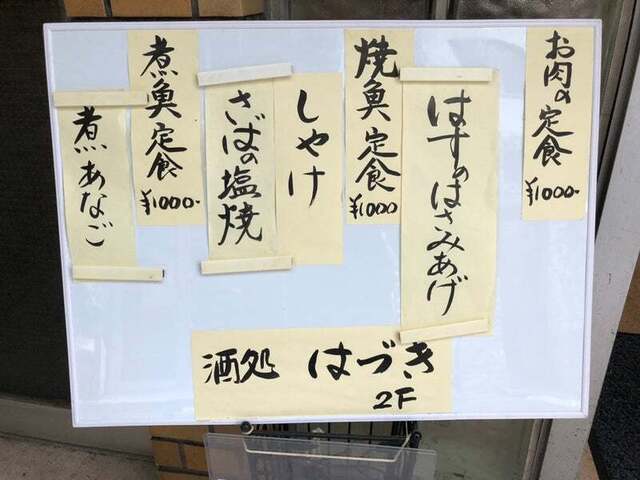 お肉の定食
¥1000-
はすのはさみあげ
焼魚定食
¥1000
しゃけ
さばの塩焼
煮魚定食
¥1000-
煮あなご
酒処 はづき
2F